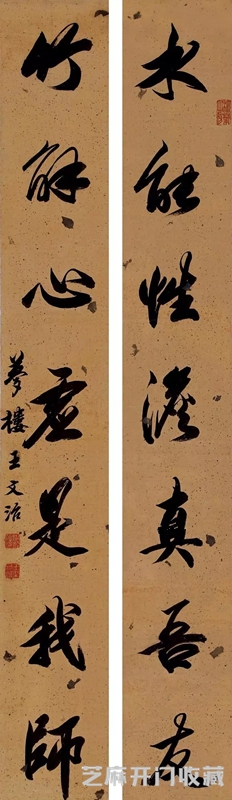 水能性澹真吾友
竹解心虚是我師
夢樓王文治
芝麻开门收藏